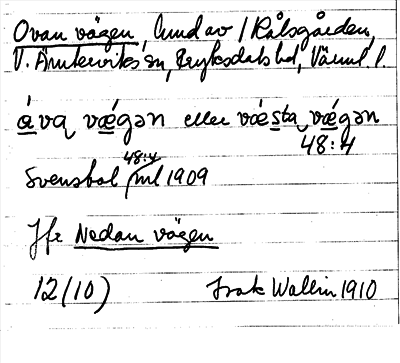 Ovan vägen, hmd av 1 Rålsgården,
V. Ämterviks sn, Fryksdals hd, Värml. l.
ǻva vǽgən eller vǽsta vǽgən
48:4
48:4
Svensbol jml 1909
Jfr Nedan vägen
12(10) Isak Wallin 1910